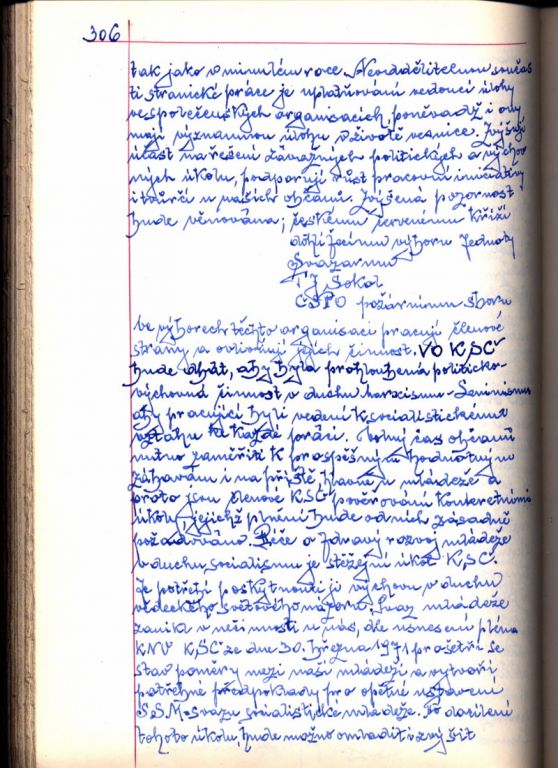 306
tak jako v minulém roce. Neoddělitelnou součás
tí stranické práce je uplatňování vedoucí úlohy
ve společenských organisacích, poněvadž i ony
mají významnou úlohu v životě vesnice. Zvyšují
účast na řešení závažných politických a výchov
ných úkolů, podporují růst pracovní iniciativy
i tvůrčí u našich občanů. Zvýšená pozornost
bude věnována; českému červenému kříži
dohlížecímu výboru Jednoty
Svazarmu
TJ Sokol
ČSPO požárnímu sboru
Ve výborech těchto organisací pracují členové
strany a ovlivňují jejich činnost. VO KSČ
bude dbát, aby byla prohloubena politicko-
výchovná činnost v duchu Marxismu-Leninismu
aby pracující byli vedeni k socialistickému
vztahu ke každé práci. Volný čas občanů
nutno zaměřiti k prospěšným hodnotným
zábavám i na příště, hlavně u mládeže a
proto jsou členové KSČ pověřováni konkretními
úkoly, jejichž plnění bude od nich zásadně
požadováno. Péče o zdravý rozvoj mládeže
v duchu socialismu je stěžejní úkol KSČ.
Je potřebí poskytnouti jí výchovu v duchu
vědeckého světového názoru. Svaz mládeže
zanikl v nečinnosti u nás, dle usnesení pléna
KNV KSČ ze dne 30. března 1971 prošetří se
stav poměry mezi naší mládeží a vytvoří
potřebné předpoklady pro opětné ustavení
S.S.M-svazu socialistické mládeže. Po docílení
tohoto úkolu, bude možno omladit i zvýšit